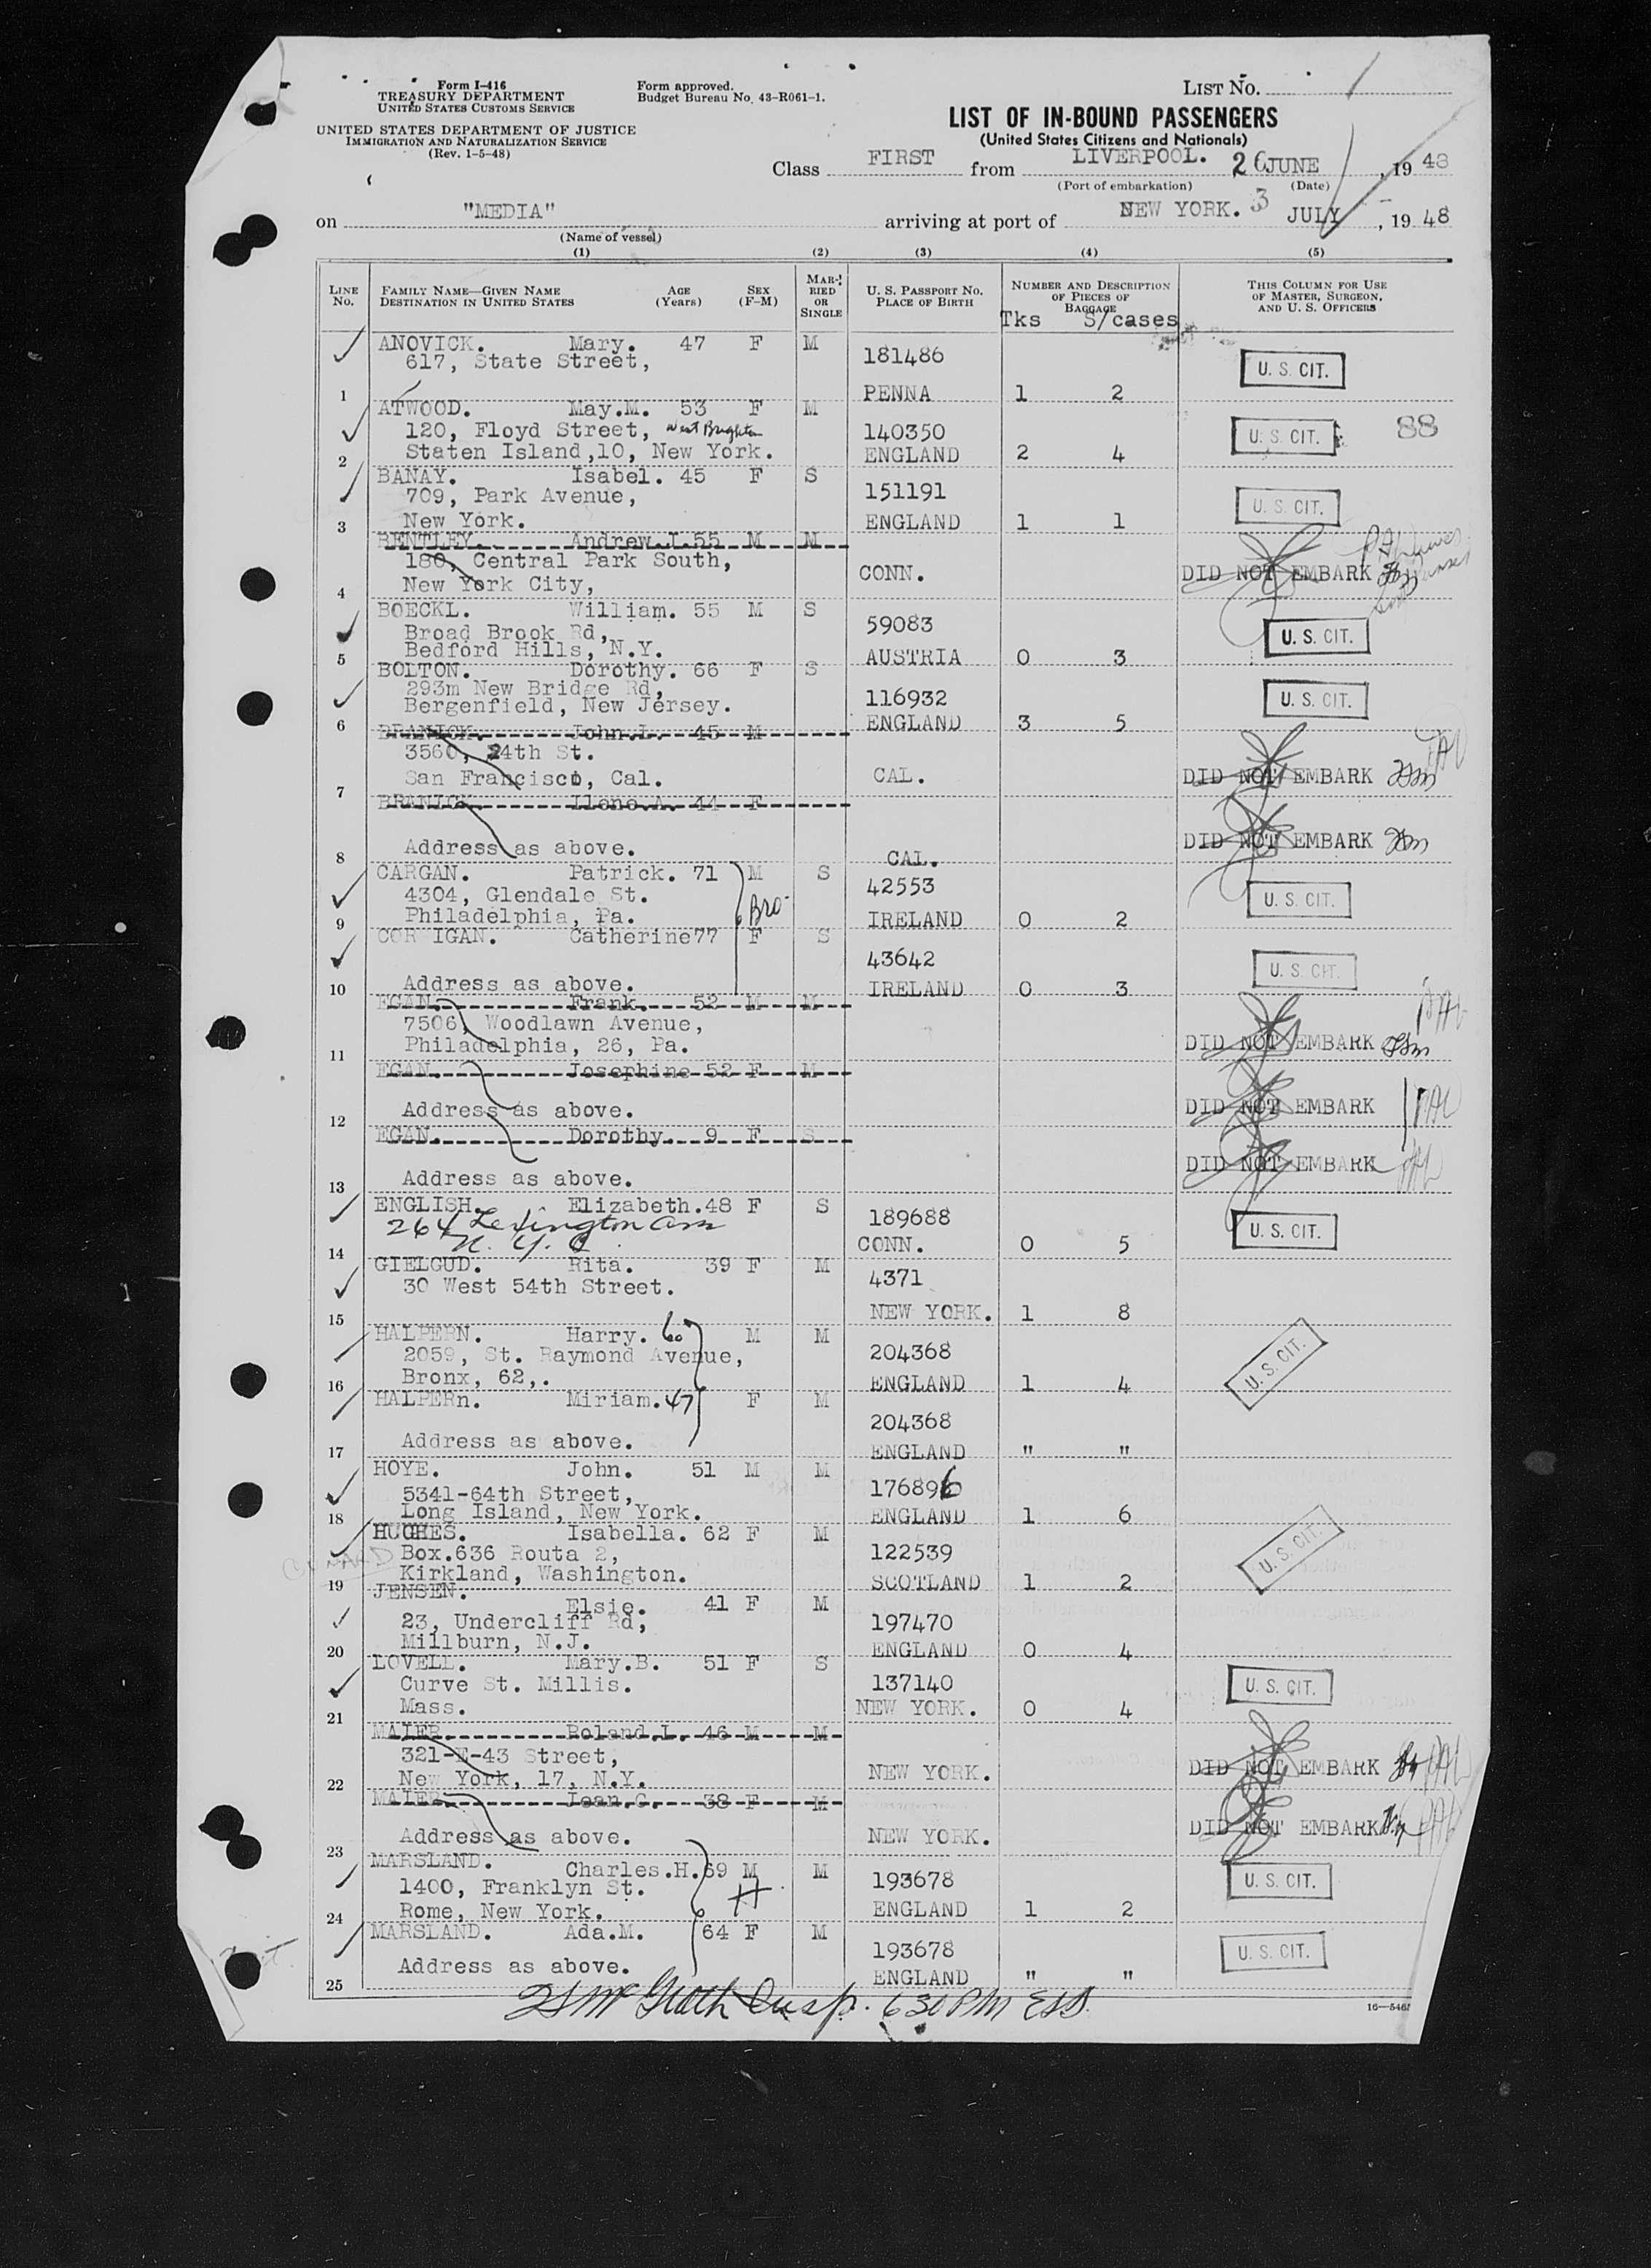 Form I-416
TREASURY DEPARTMENT
UNITED STATES CUSTOMS SERVICE
UNITED STATES DEPARTMENT OF JUSTICE
IMMIGRATION AND NATURALIZATION SERVICE
(Rev. 1-5-48)
Form approved.
Budget Bureau No. 43-R061-1.
LIST NO. 1
LIST OF IN-BOUND PASSENGERS
(United States Citizens and Nationals)
Class FIRST from LIVERPOOL. 26 JUNE, 1948
(Port of embarkation) (Date)
on "MEDIA" arriving at port of NEW YORK. 3 JULY, 1948
(Name of vessel)
(1) (2) (3) (4) (5)
LINE NO. FAMILY NAME—GIVEN NAME DESTINATION IN UNITED STATES AGE (Years) SEX (F-M) MARRIED OR SINGLE U. S. PASSPORT NO. PLACE OF BIRTH NUMBER AND DESCRIPTION OF PIECES OF BAGGAGE THIS COLUMN FOR USE OF MASTER, SURGEON, AND U. S. OFFICERS
Tks S/cases
ANOVICK. Mary. 47 F M 181486
617, State Street, U. S. CIT.
1 PENNA 1 2
ATWOOD. May.M. 53 F M
120, Floyd Street, West Brighton 140350 U. S. CIT. 88
2 Staten Island,10, New York. ENGLAND 2 4
BANAY. Isabel. 45 F S
709, Park Avenue, 151191 U. S. CIT.
3 New York. ENGLAND 1 1
BENTLEY. Andrew.I.55 M M
180, Central Park South, CONN. DID NOT EMBARK
4 New York City,
BOECKL. William. 55 M S
Broad Brook Rd, 59083 U. S. CIT.
5 Bedford Hills, N.Y. AUSTRIA 0 3
BOLTON. Dorothy. 66 F S
293m New Bridge Rd, 116932 U. S. CIT.
6 Bergenfield, New Jersey. ENGLAND 3 5
BRANICK. John.L. 45 M
3560, 24th St.
7 San Francisco, Cal. CAL. DID NOT EMBARK
BRANICK. Ilene.A. 44 F
DID NOT EMBARK
8 Address as above. CAL.
CARGAN. Patrick. 71 M S
4304, Glendale St. 42553 U. S. CIT.
9 Philadelphia, Pa. Bro- IRELAND 0 2
COR IGAN. Catherine77 F S
43642 U. S. CIT.
10 Address as above. IRELAND 0 3
EGAN. Frank. 52 M M
7506, Woodlawn Avenue,
11 Philadelphia, 26, Pa. DID NOT EMBARK
EGAN. Josephine 52 F M
12 Address as above. DID NOT EMBARK
EGAN. Dorothy. 9 F S
DID NOT EMBARK
13 Address as above.
ENGLISH. Elizabeth.48 F S 189688
264 Lexington Ave U. S. CIT.
14 N. Y. C. CONN. 0 5
GIELGUD. Rita. 39 F M
30 West 54th Street. 4371
15 NEW YORK. 1 8
HALPERN. Harry. 60 M M
2059, St. Raymond Avenue, 204368 U. S. CIT.
16 Bronx, 62,. ENGLAND 1 4
HALPERn. Miriam. 47 F M
204368
17 Address as above. ENGLAND " "
HOYE. John. 51 M M
5341-64th Street, 176896
18 Long Island, New York. ENGLAND 1 6
HUGHES. Isabella. 62 F M
CUNARD Box.636 Routa 2, 122539 U. S. CIT.
19 Kirkland, Washington. SCOTLAND 1 2
JENSEN. Elsie. 41 F M
23, Undercliff Rd, 197470
20 Millburn, N.J. ENGLAND 0 4
LOVELL. Mary.B. 51 F S
Curve St. Millis. 137140 U. S. CIT.
21 Mass. NEW YORK. 0 4
MAIER. Roland.L. 46 M M
321-E-43 Street, DID NOT EMBARK
22 New York, 17, N.Y. NEW YORK.
MAIER. Jean.C. 38 F M
DID NOT EMBARK
23 Address as above. NEW YORK.
MARSLAND. Charles.H.69 M M
1400, Franklyn St. H 193678 U. S. CIT.
24 Rome, New York. ENGLAND 1 2
MARSLAND. Ada.M. 64 F M
193678 U. S. CIT.
25 Address as above. ENGLAND " "
McGrath Insp. 630 PM